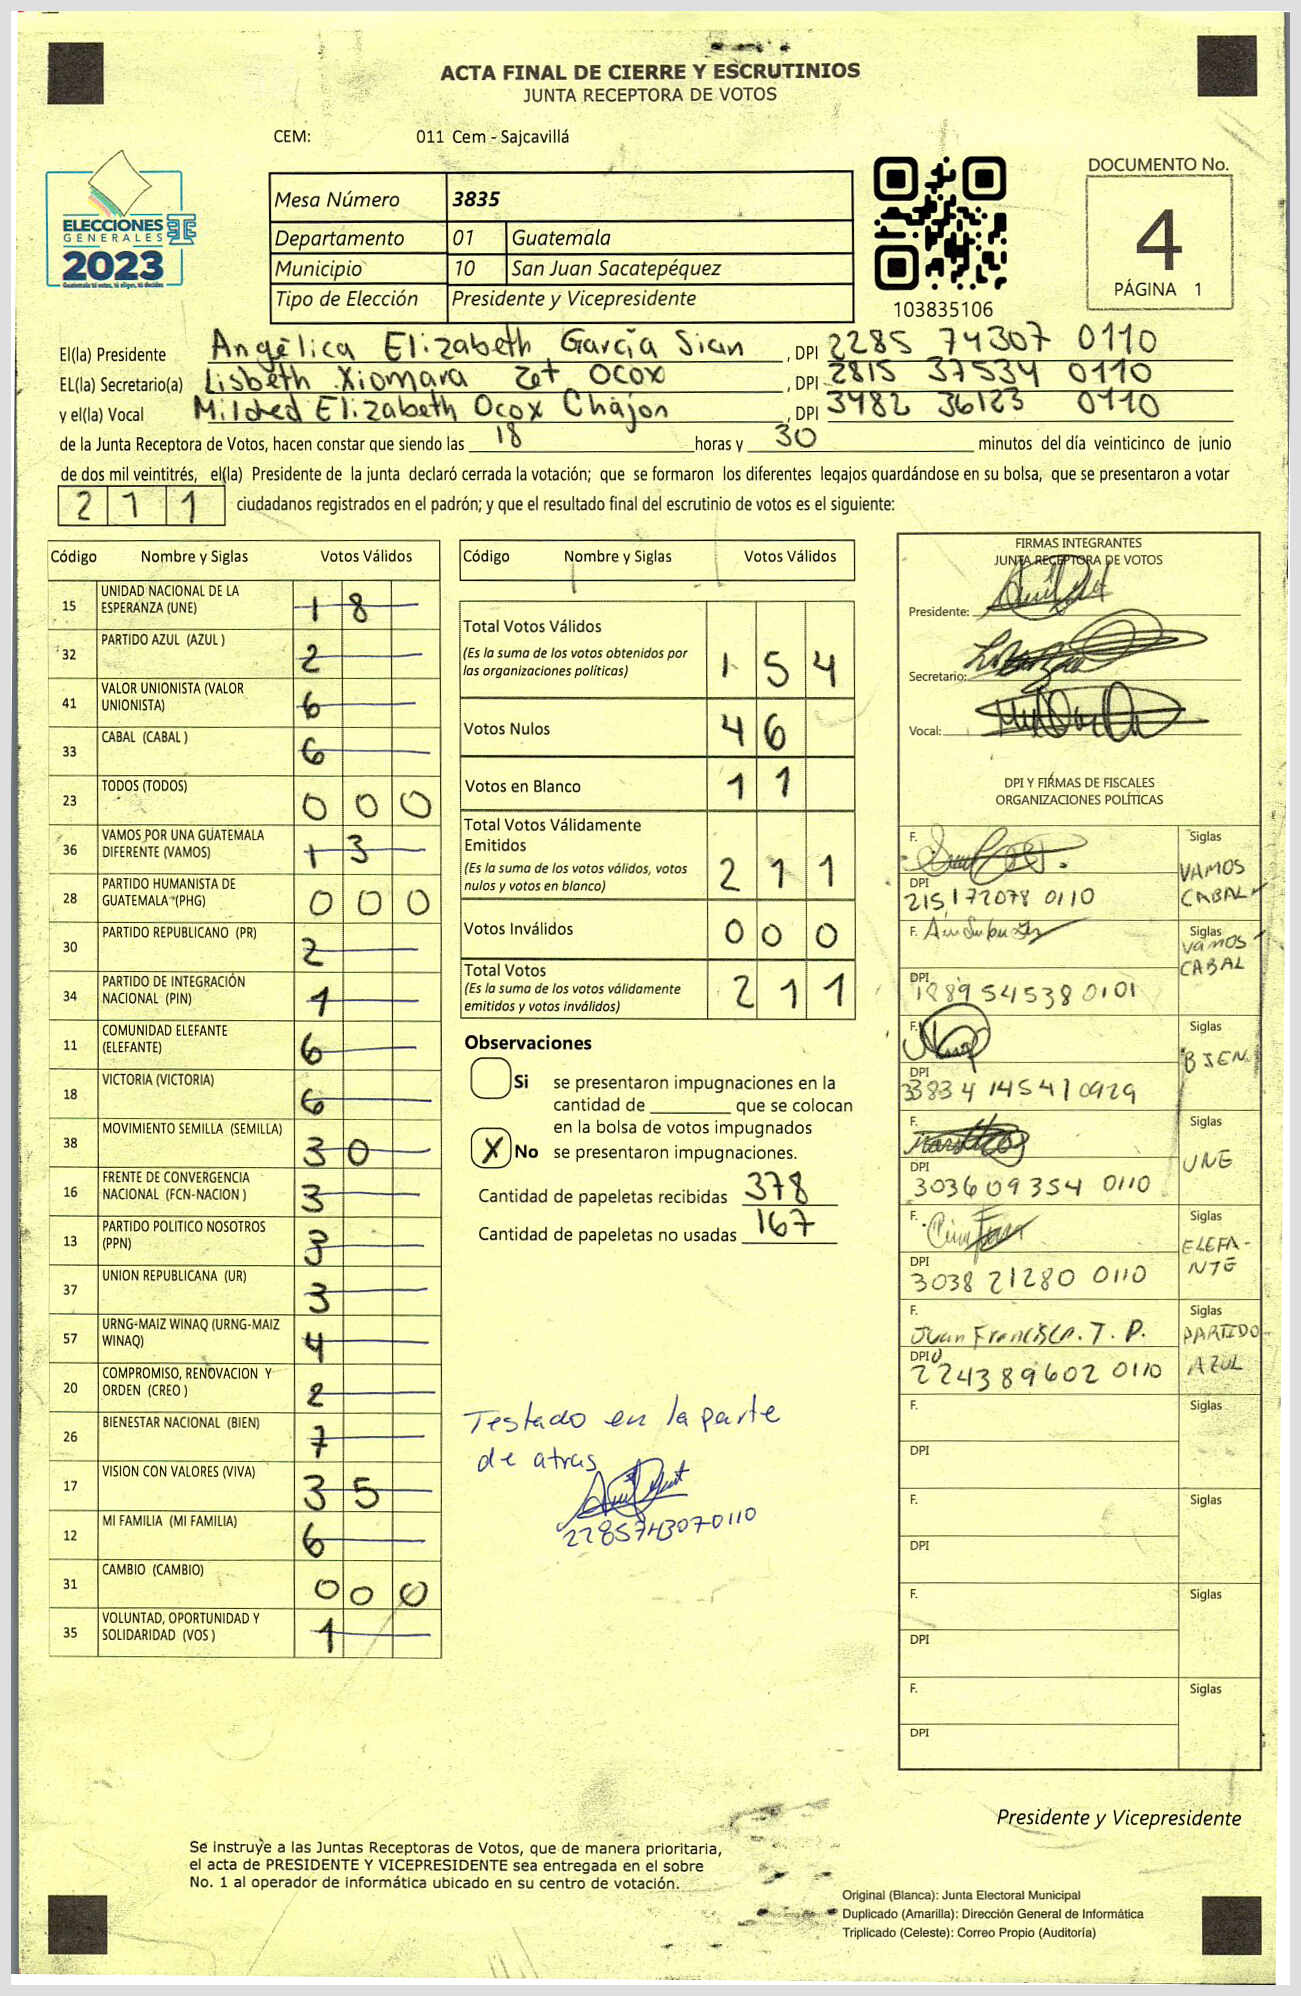 ACTA FINAL DE CIERRE Y ESCRUTINIOS
JUNTA RECEPTORA DE VOTOS
CEM: 011 Cem - Sajcavillá
ELECCIONES
GENERALES
2023
Guatemala tú votas, tú eliges, tú decides
Mesa Número 3835
Departamento 01 Guatemala
Municipio 10 San Juan Sacatepéquez
Tipo de Elección Presidente y Vicepresidente
103835106
DOCUMENTO No.
4
PÁGINA 1
El(la) Presidente Angélica Elizabeth García Sian , DPI 2285 74307 0110
EL(la) Secretario(a) Lisbeth Xiomara Zet Ocox , DPI 2815 37534 0110
y el(la) Vocal Mildred Elizabeth Ocox Chajon , DPI 3982 36123 0110
de la Junta Receptora de Votos, hacen constar que siendo las 18 horas y 30 minutos del día veinticinco de junio
de dos mil veintitrés, el(la) Presidente de la junta declaró cerrada la votación; que se formaron los diferentes legajos guardándose en su bolsa, que se presentaron a votar
211 ciudadanos registrados en el padrón; y que el resultado final del escrutinio de votos es el siguiente:
Código Nombre y Siglas Votos Válidos
15 UNIDAD NACIONAL DE LA ESPERANZA (UNE) 18
32 PARTIDO AZUL (AZUL ) 2
41 VALOR UNIONISTA (VALOR UNIONISTA) 6
33 CABAL (CABAL ) 6
23 TODOS (TODOS) 0 0 0
36 VAMOS POR UNA GUATEMALA DIFERENTE (VAMOS) 13
28 PARTIDO HUMANISTA DE GUATEMALA (PHG) 0 0 0
30 PARTIDO REPUBLICANO (PR) 2
34 PARTIDO DE INTEGRACIÓN NACIONAL (PIN) 1
11 COMUNIDAD ELEFANTE (ELEFANTE) 6
18 VICTORIA (VICTORIA) 6
38 MOVIMIENTO SEMILLA (SEMILLA) 30
16 FRENTE DE CONVERGENCIA NACIONAL (FCN-NACION ) 3
13 PARTIDO POLITICO NOSOTROS (PPN) 3
37 UNION REPUBLICANA (UR) 3
57 URNG-MAIZ WINAQ (URNG-MAIZ WINAQ) 4
20 COMPROMISO, RENOVACION Y ORDEN (CREO ) 2
26 BIENESTAR NACIONAL (BIEN) 7
17 VISION CON VALORES (VIVA) 35
12 MI FAMILIA (MI FAMILIA) 6
31 CAMBIO (CAMBIO) 0 0 0
35 VOLUNTAD, OPORTUNIDAD Y SOLIDARIDAD (VOS ) 1
Código Nombre y Siglas Votos Válidos
Total Votos Válidos 154
(Es la suma de los votos obtenidos por
las organizaciones políticas)
Votos Nulos 46
Votos en Blanco 11
Total Votos Válidamente
Emitidos 211
(Es la suma de los votos válidos, votos
nulos y votos en blanco)
Votos Inválidos 0 0 0
Total Votos 211
(Es la suma de los votos válidamente
emitidos y votos inválidos)
Observaciones
Si se presentaron impugnaciones en la
cantidad de ________ que se colocan
en la bolsa de votos impugnados
X No se presentaron impugnaciones.
Cantidad de papeletas recibidas 378
Cantidad de papeletas no usadas 167
Testado en la parte
de atras
2285743070110
FIRMAS INTEGRANTES
JUNTA RECEPTORA DE VOTOS
Presidente:
Secretario:
Vocal:
DPI Y FIRMAS DE FISCALES
ORGANIZACIONES POLÍTICAS
F. Siglas VAMOS CABAL
DPI 215172078 0110
F. Siglas VAMOS CABAL
DPI 1889545380101
F. Siglas BIEN
DPI 3383414541 0929
F. Siglas UNE
DPI 303609354 0110
F. Siglas ELEFA-NTE
DPI 3038 21280 0110
F. Juan Francisco. T. P. Siglas PARTIDO AZUL
DPI 224389602 0110
F. Siglas
DPI
F. Siglas
DPI
F. Siglas
DPI
F. Siglas
DPI
Presidente y Vicepresidente
Se instruye a las Juntas Receptoras de Votos, que de manera prioritaria,
el acta de PRESIDENTE Y VICEPRESIDENTE sea entregada en el sobre
No. 1 al operador de informática ubicado en su centro de votación.
Original (Blanca): Junta Electoral Municipal
Duplicado (Amarilla): Dirección General de Informática
Triplicado (Celeste): Correo Propio (Auditoría)